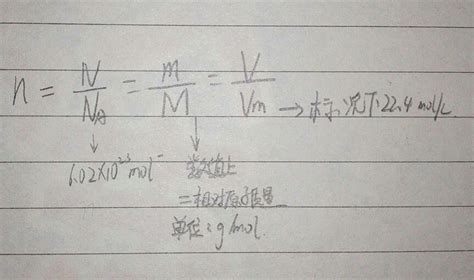 n = N/NA = m/M = V/Vm → 标况下22.4 mol/L
↓ ↓
6.02×10²³mol⁻ 数值上
=相对原子质量
单位：g/mol